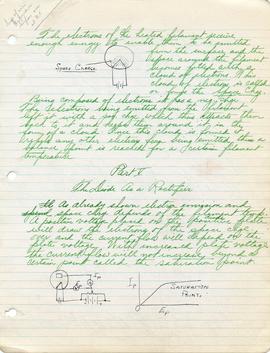 The electrons of the heated filament receive
enough energy to enable them to be emitted
from the surface and the
space around the filament
becomes filled with a
cloud of electrons. This
cloud of electrons is called
the Space Chg.
Space Charge
Being composed of electrons it has a neg chg.
The electrons being emitted from the filament
left it with a pos chg which thus attracts them
to it and keeps them around it in the
form of a cloud. Once this cloud is formed it
repels any other electrons from being emitted thus a
Point is reached for a certain filament
temperature
Part V
The Diode As a Rectifier
As already shown electron emission and
space chg depends on the filament temp
A positive voltage placed on the plate
will draw the electrons of the space chg
over and the current flow will depend on the
plate voltage. With increased plate voltage
the current flow will not increase beyond a
certain point called the saturation point.
Ip
Saturation
Point
Ep